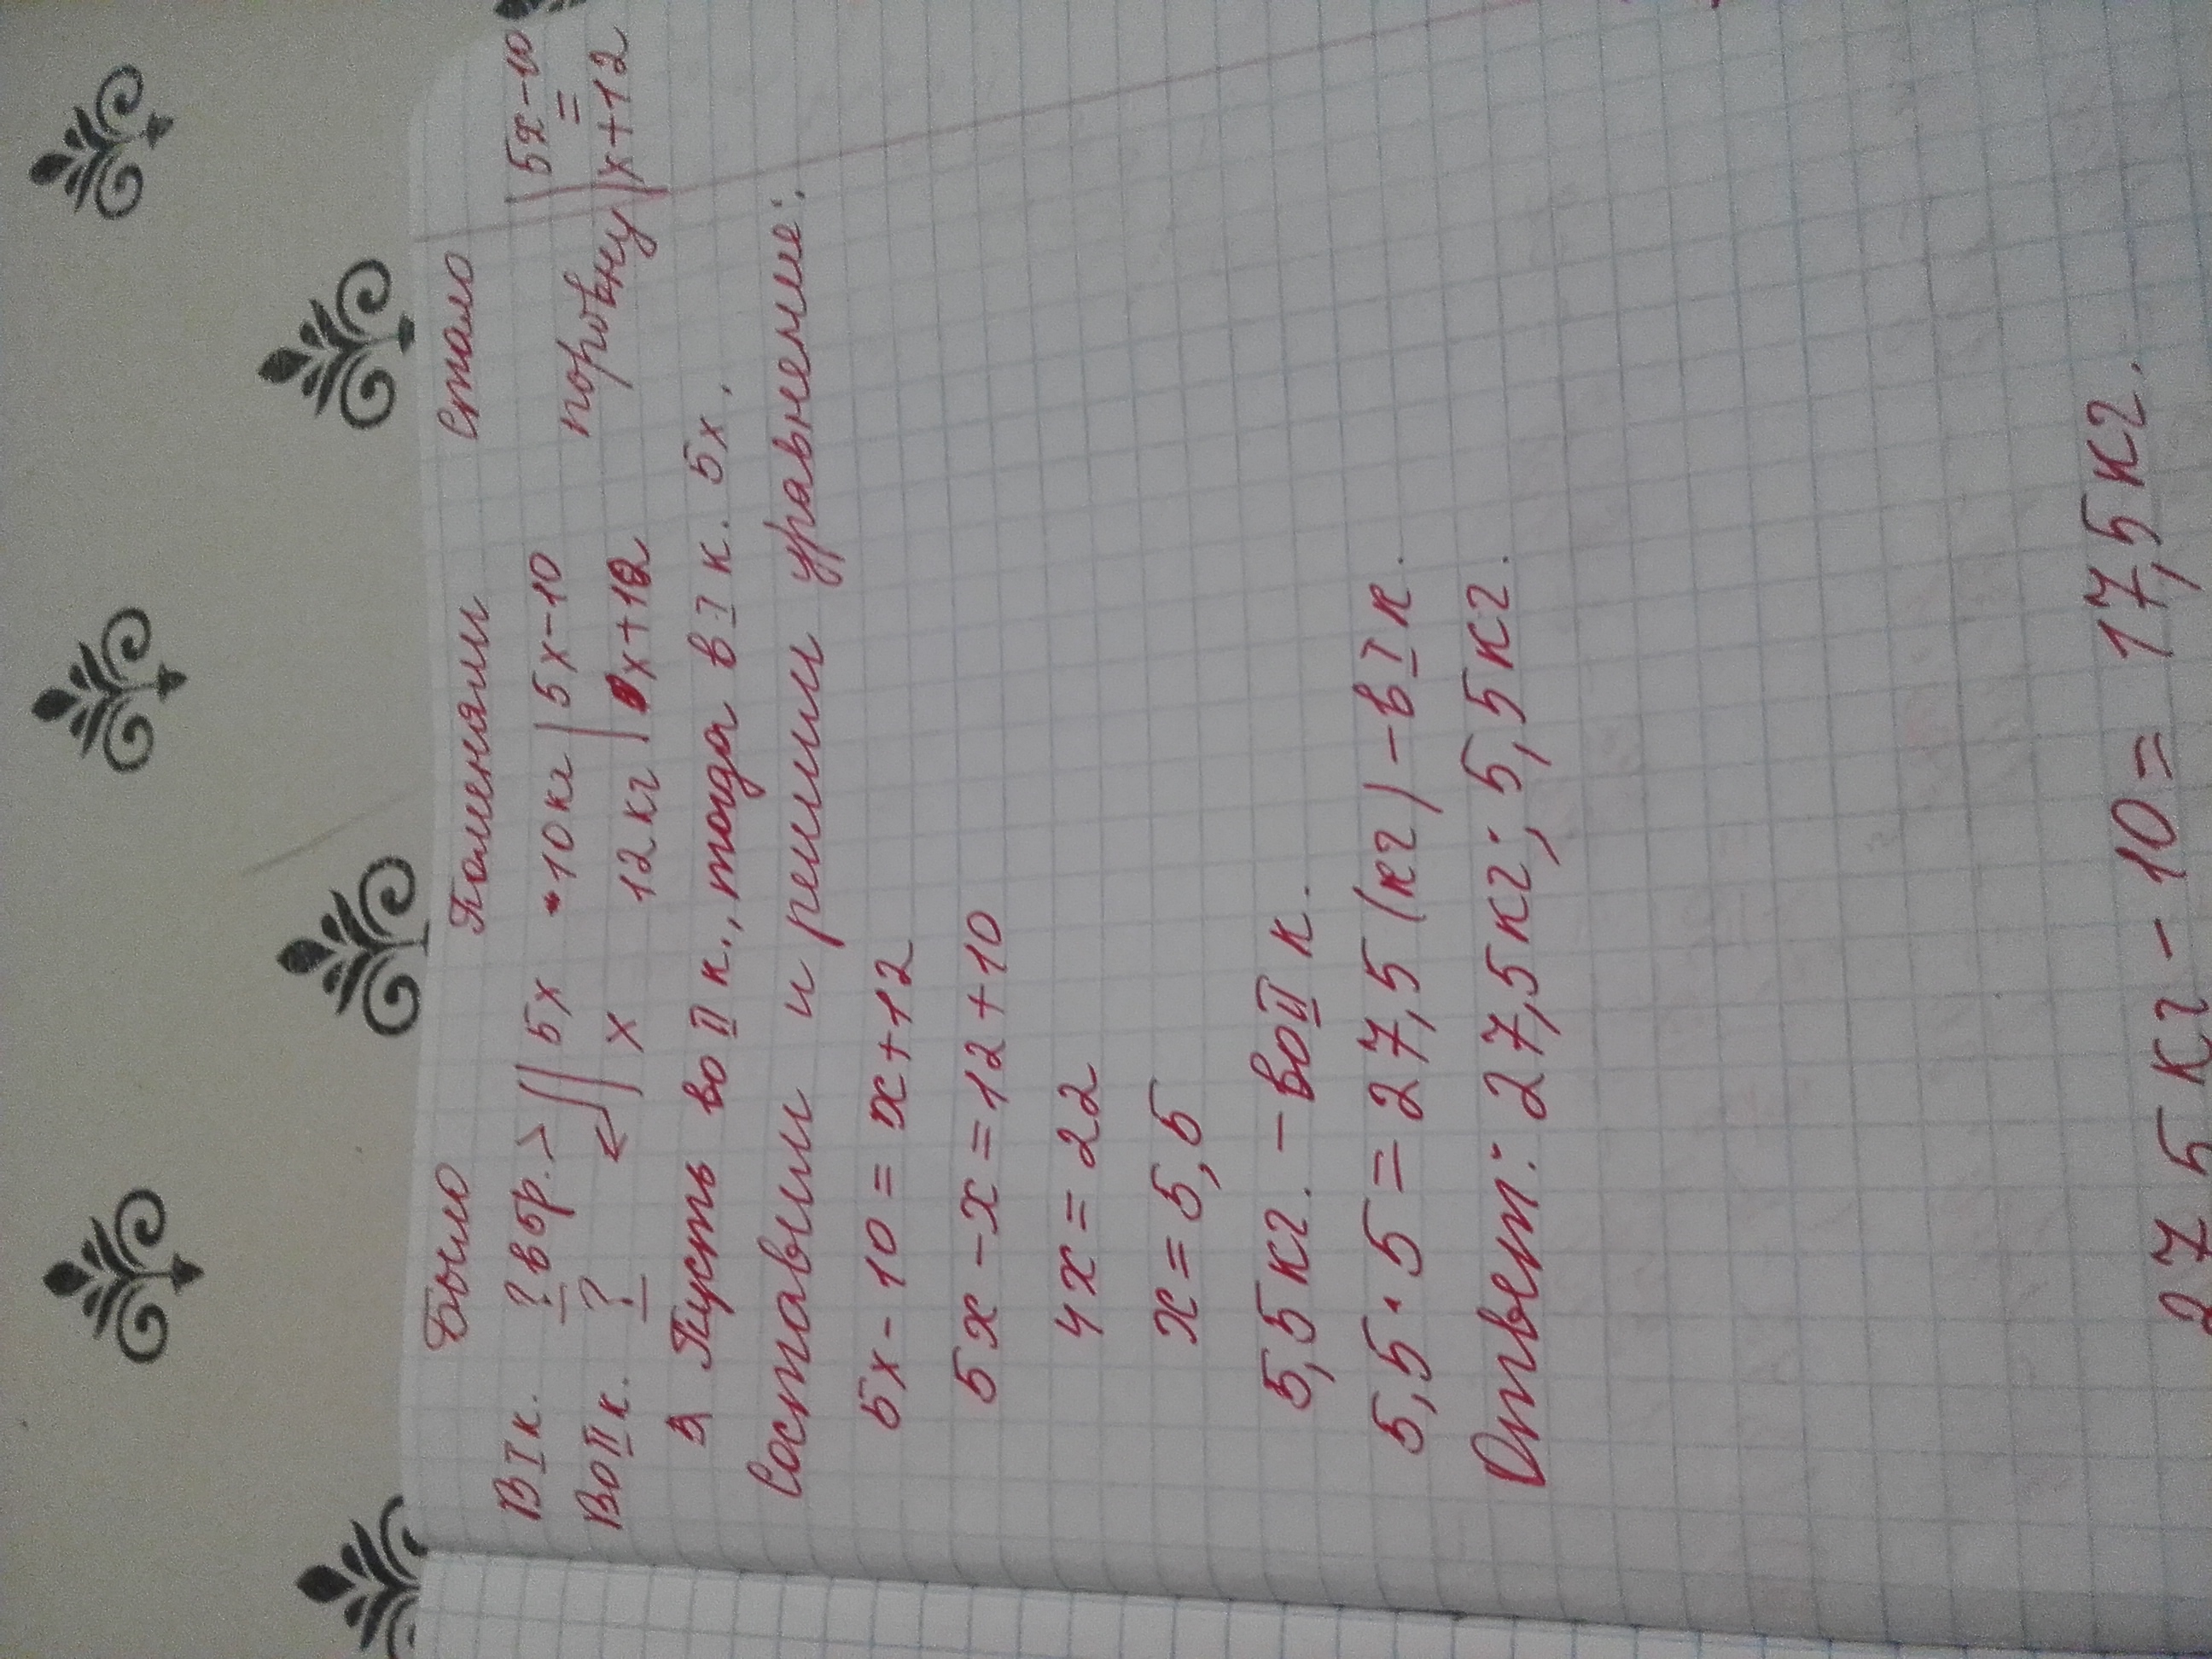 Было Поменяли Стало
В I к. ? в 5 р. > 5x 10 кг 5x-10 5x-10
поровну =
Во II к. ? x 12 кг x+12 x+12
Пусть во II к., тогда в I к. 5x.
Составим и решим уравнение:
5x-10=x+12
5x-x=12+10
4x=22
x=5,5
5,5 кг. - во II к.
5,5·5=27,5 (кг) - в I к.
Ответ: 27,5 кг; 5,5 кг.
27,5 кг - 10 = 17,5 кг.